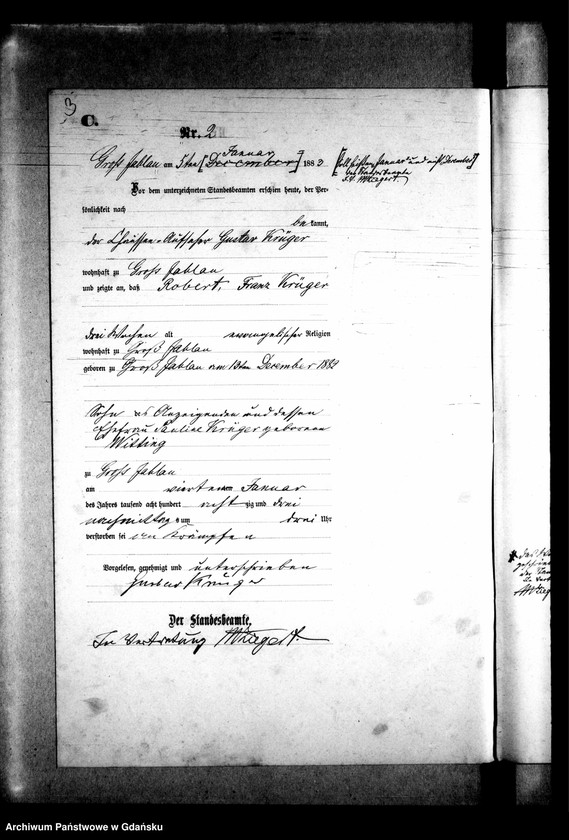 3
C.
Nr. 2
Januar
Groß Jablau am 5ten [December] 1883
[soll heißen "Januar" und nicht December]
Der Standesbeamte
I. V.
Vor dem unterzeichneten Standesbeamten erschien heute, der Per-
sönlichkeit nach
be kannt,
der Chaussee-Aufseher Gustav Krüger
wohnhaft zu Groß Jablau
und zeigte an, daß Robert, Franz Krüger
drei Wochen alt evangelischer Religion
wohnhaft zu Groß Jablau
geboren zu Groß Jablau am 13ten December 1882
Sohn des Anzeigenden und dessen
Ehefrau Pauline Krüger geborenen
Witting
zu Groß Jablau
am vierten Januar
des Jahres tausend acht hundert acht zig und drei
nachmittags um drei Uhr
verstorben sei an Krämpfen
Vorgelesen, genehmigt und unterschrieben
Gustav Krüger
Der Standesbeamte,
In Vertretung
Archiwum Państwowe w Gdańsku